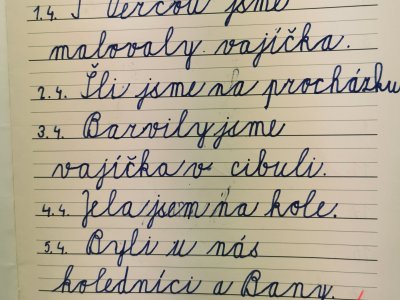 1.4. S Verčou jsme
malovaly vajíčka.
2.4. Šli jsme na procházku
3.4. Barvily jsme
vajíčka v cibuli.
4.4. Jela jsem na kole.
5.4. Byli u nás
koledníci a Bany.